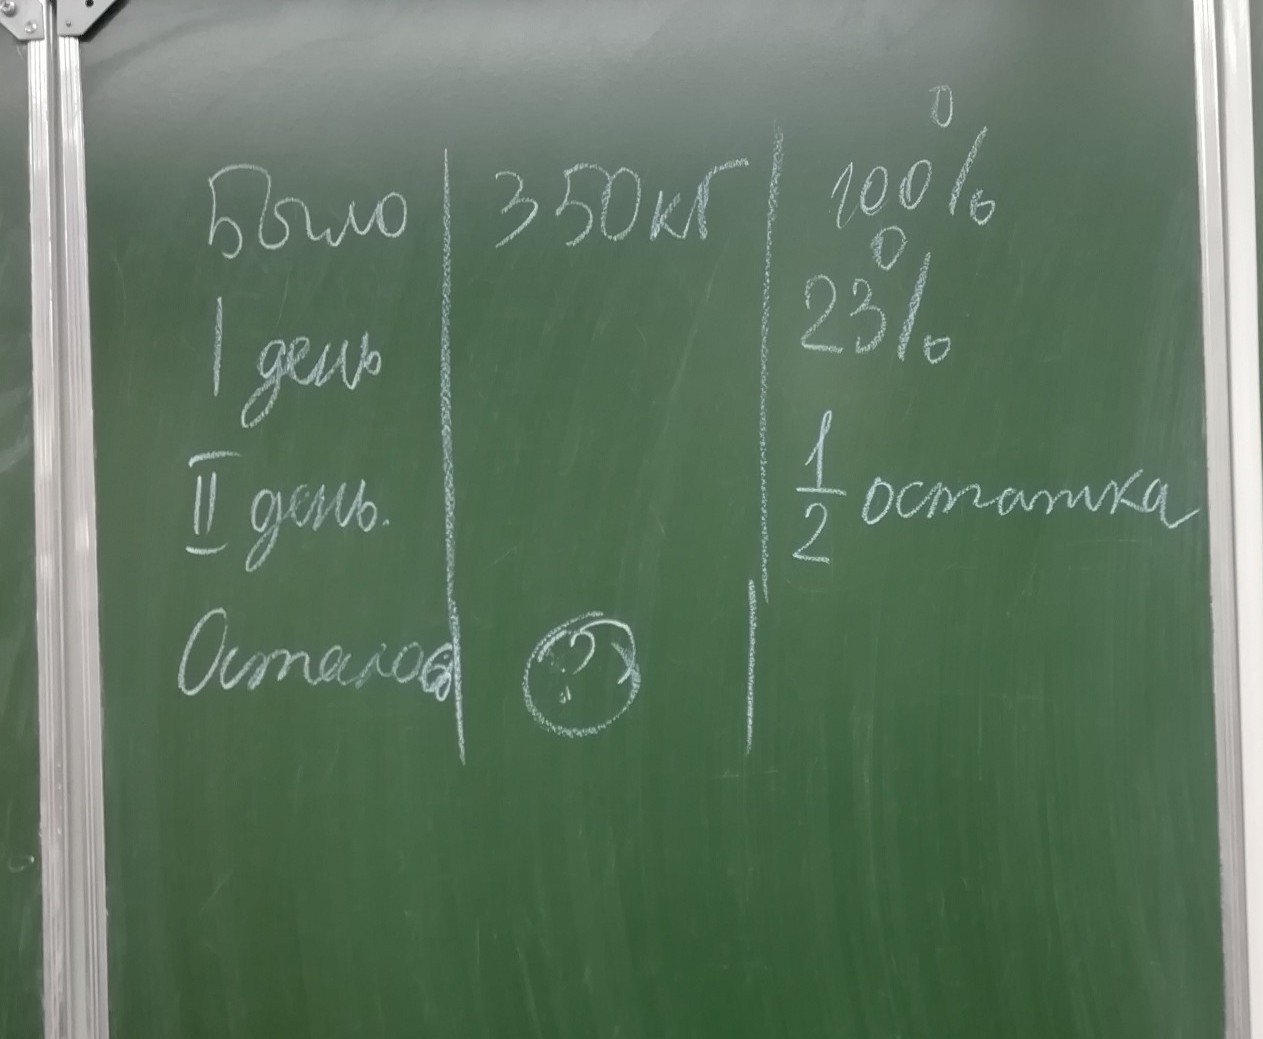 Было 350кг 100%
I день 23%
II день. 1/2 остатка
Осталось ?